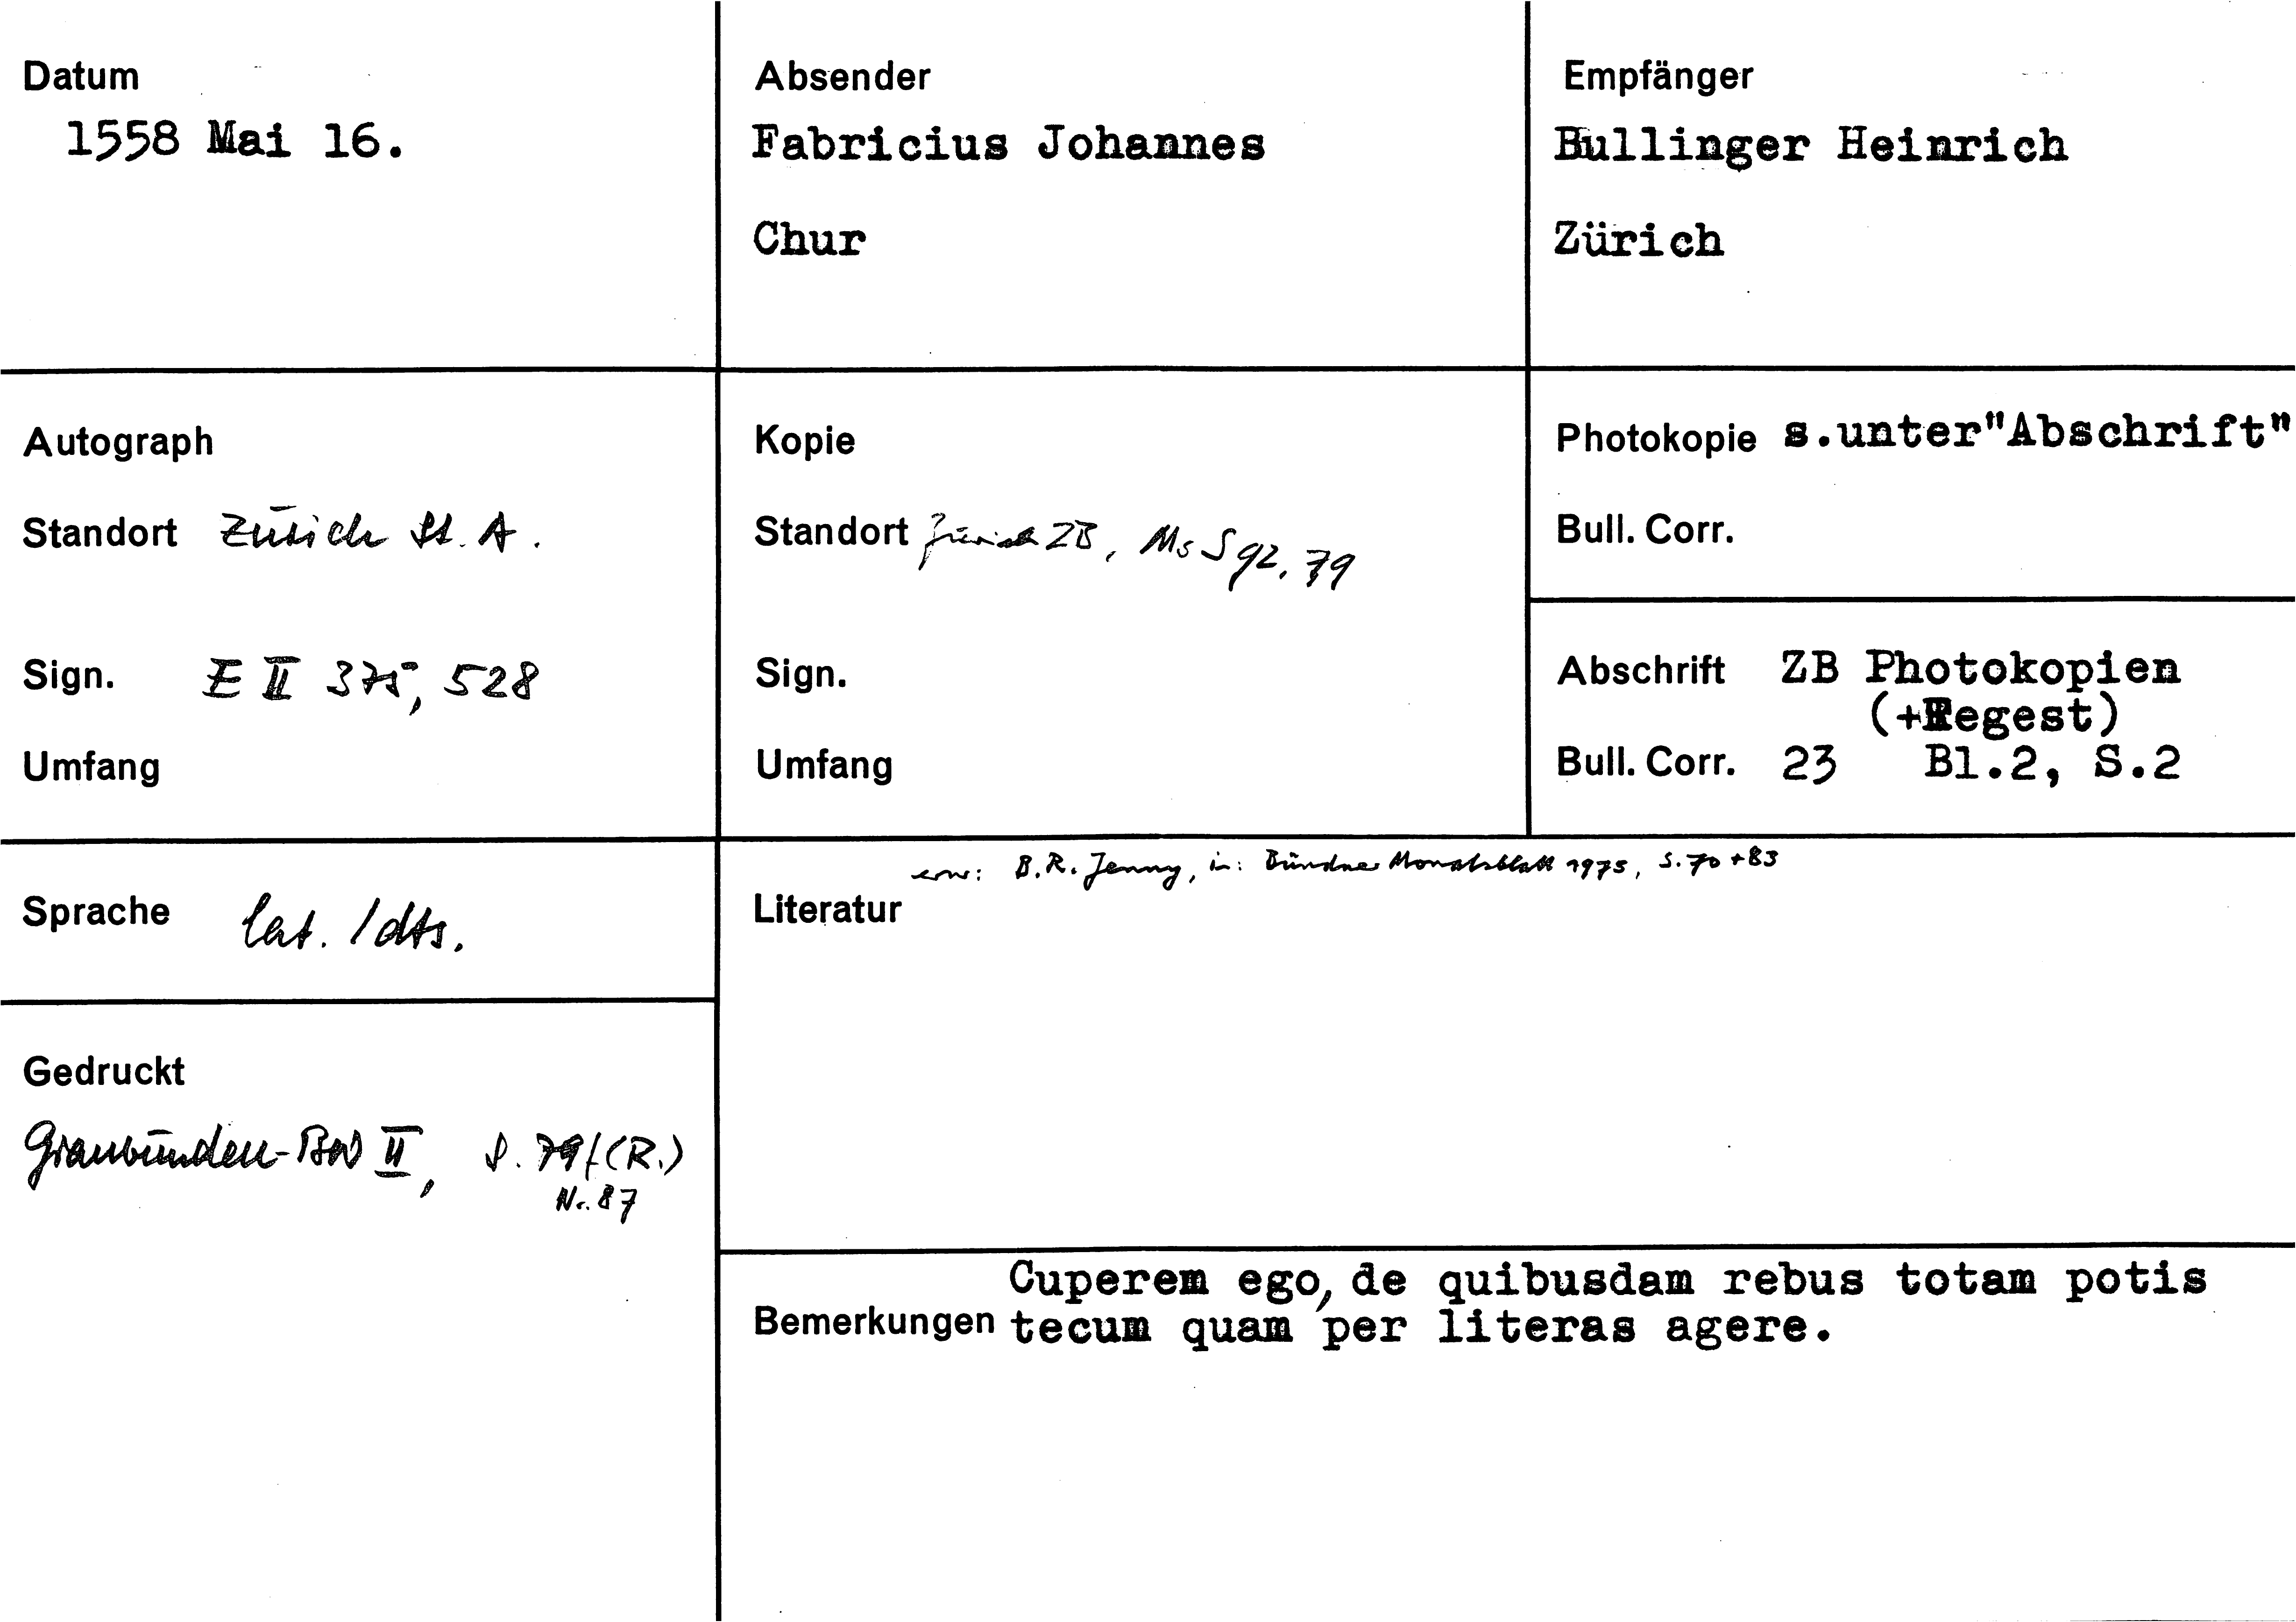 Datum
1558 Mai 16.
Absender
Fabricius Johannes
Chur
Empfänger
Bullinger Heinrich
Zürich
Autograph
Standort Zürich St. A.
Sign. E II 375, 528
Umfang
Kopie
Standort Zürich ZB, Ms S 92, 79
Sign.
Umfang
Photokopie s.unter"Abschrift"
Bull. Corr.
Abschrift ZB Photokopien
(+Regest)
Bull. Corr. 23 Bl.2, S.2
Sprache lat. / dts.
Gedruckt
Graubünden-BW II, S. 79f (R.)
Nr. 87
erw: B.R. Jenny, in: Bündner Monatsblatt 1975, S. 70 + 83
Literatur
Cuperem ego, de quibusdam rebus totam potis
Bemerkungen tecum quam per literas agere.